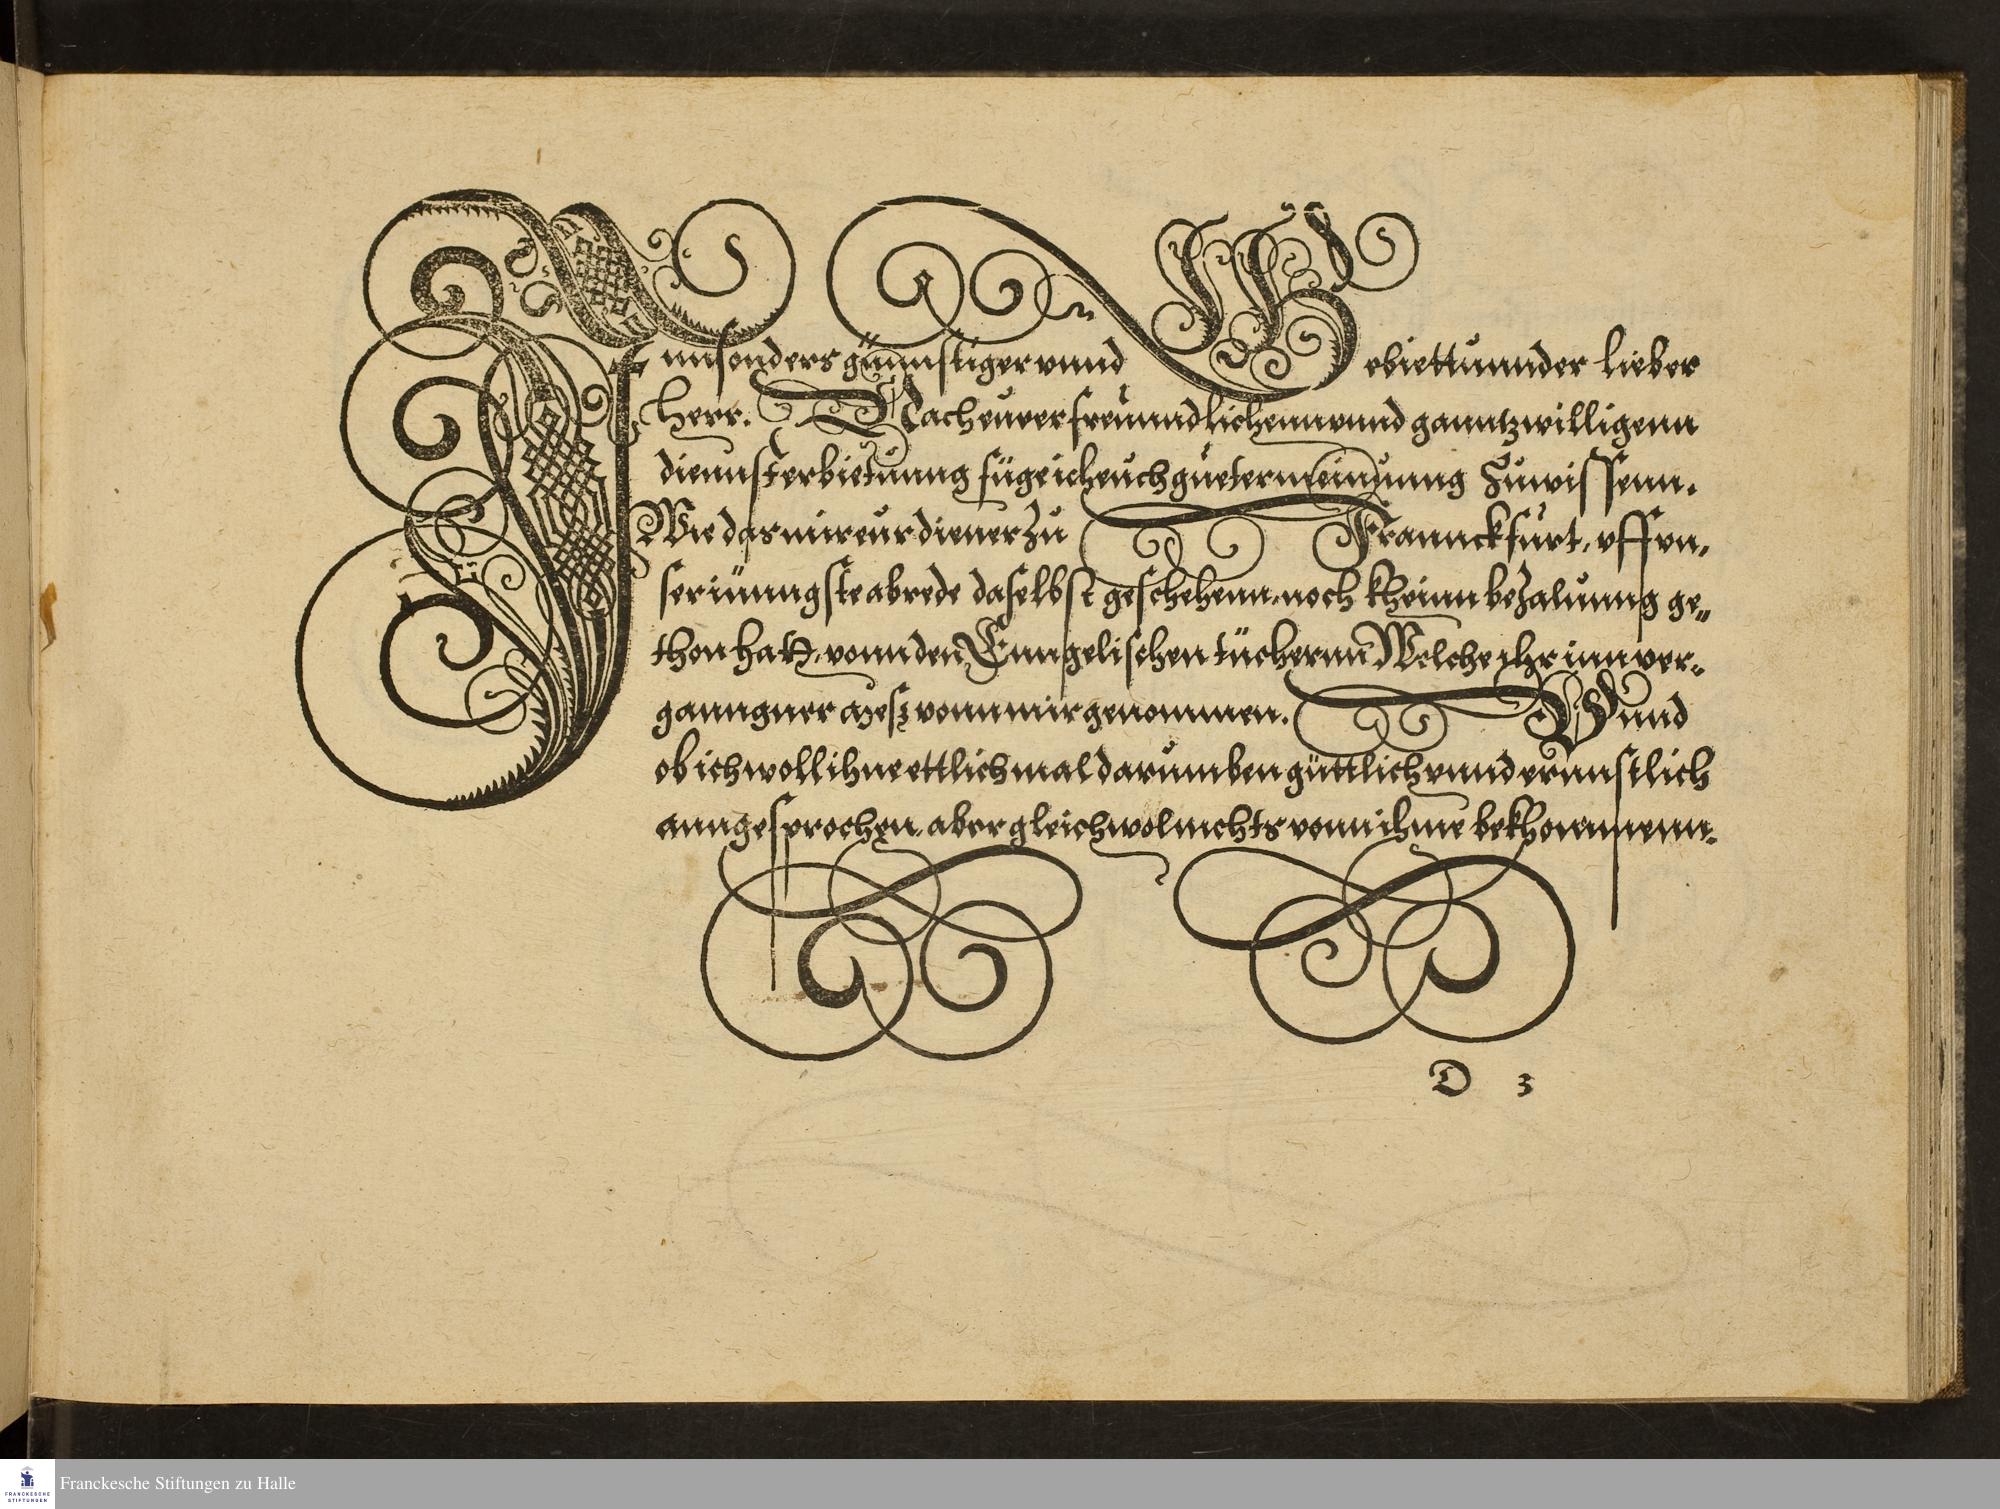 Innsonders günnstiger vnnd Gebiettunnder lieber
Herr. Nach eurer freunndlichenn vnnd ganntz willigenn
diennsterbietunng füge ich euch gueter meinunng Zuwissenn.
Wie das mir eur diener Zu Franckfurt, vff vn,
ser iünngste abrede daselbst geschehenn, noch kheinn beZalunng ge„
thon hatt, vonn den Enngelischen tüchernn Welche ihr inn ver„
ganngner Mesz vonn mir genommen. Vnnd
ob ich woll ihne ettlich mal darumben güttlich vnnd ernnstlich
anngesprochen, aber gleichwol nichts vonn ihme bekhommenn.
D 3
Franckesche Stiftungen zu Halle
FRANCKESCHE
STIFTUNGEN